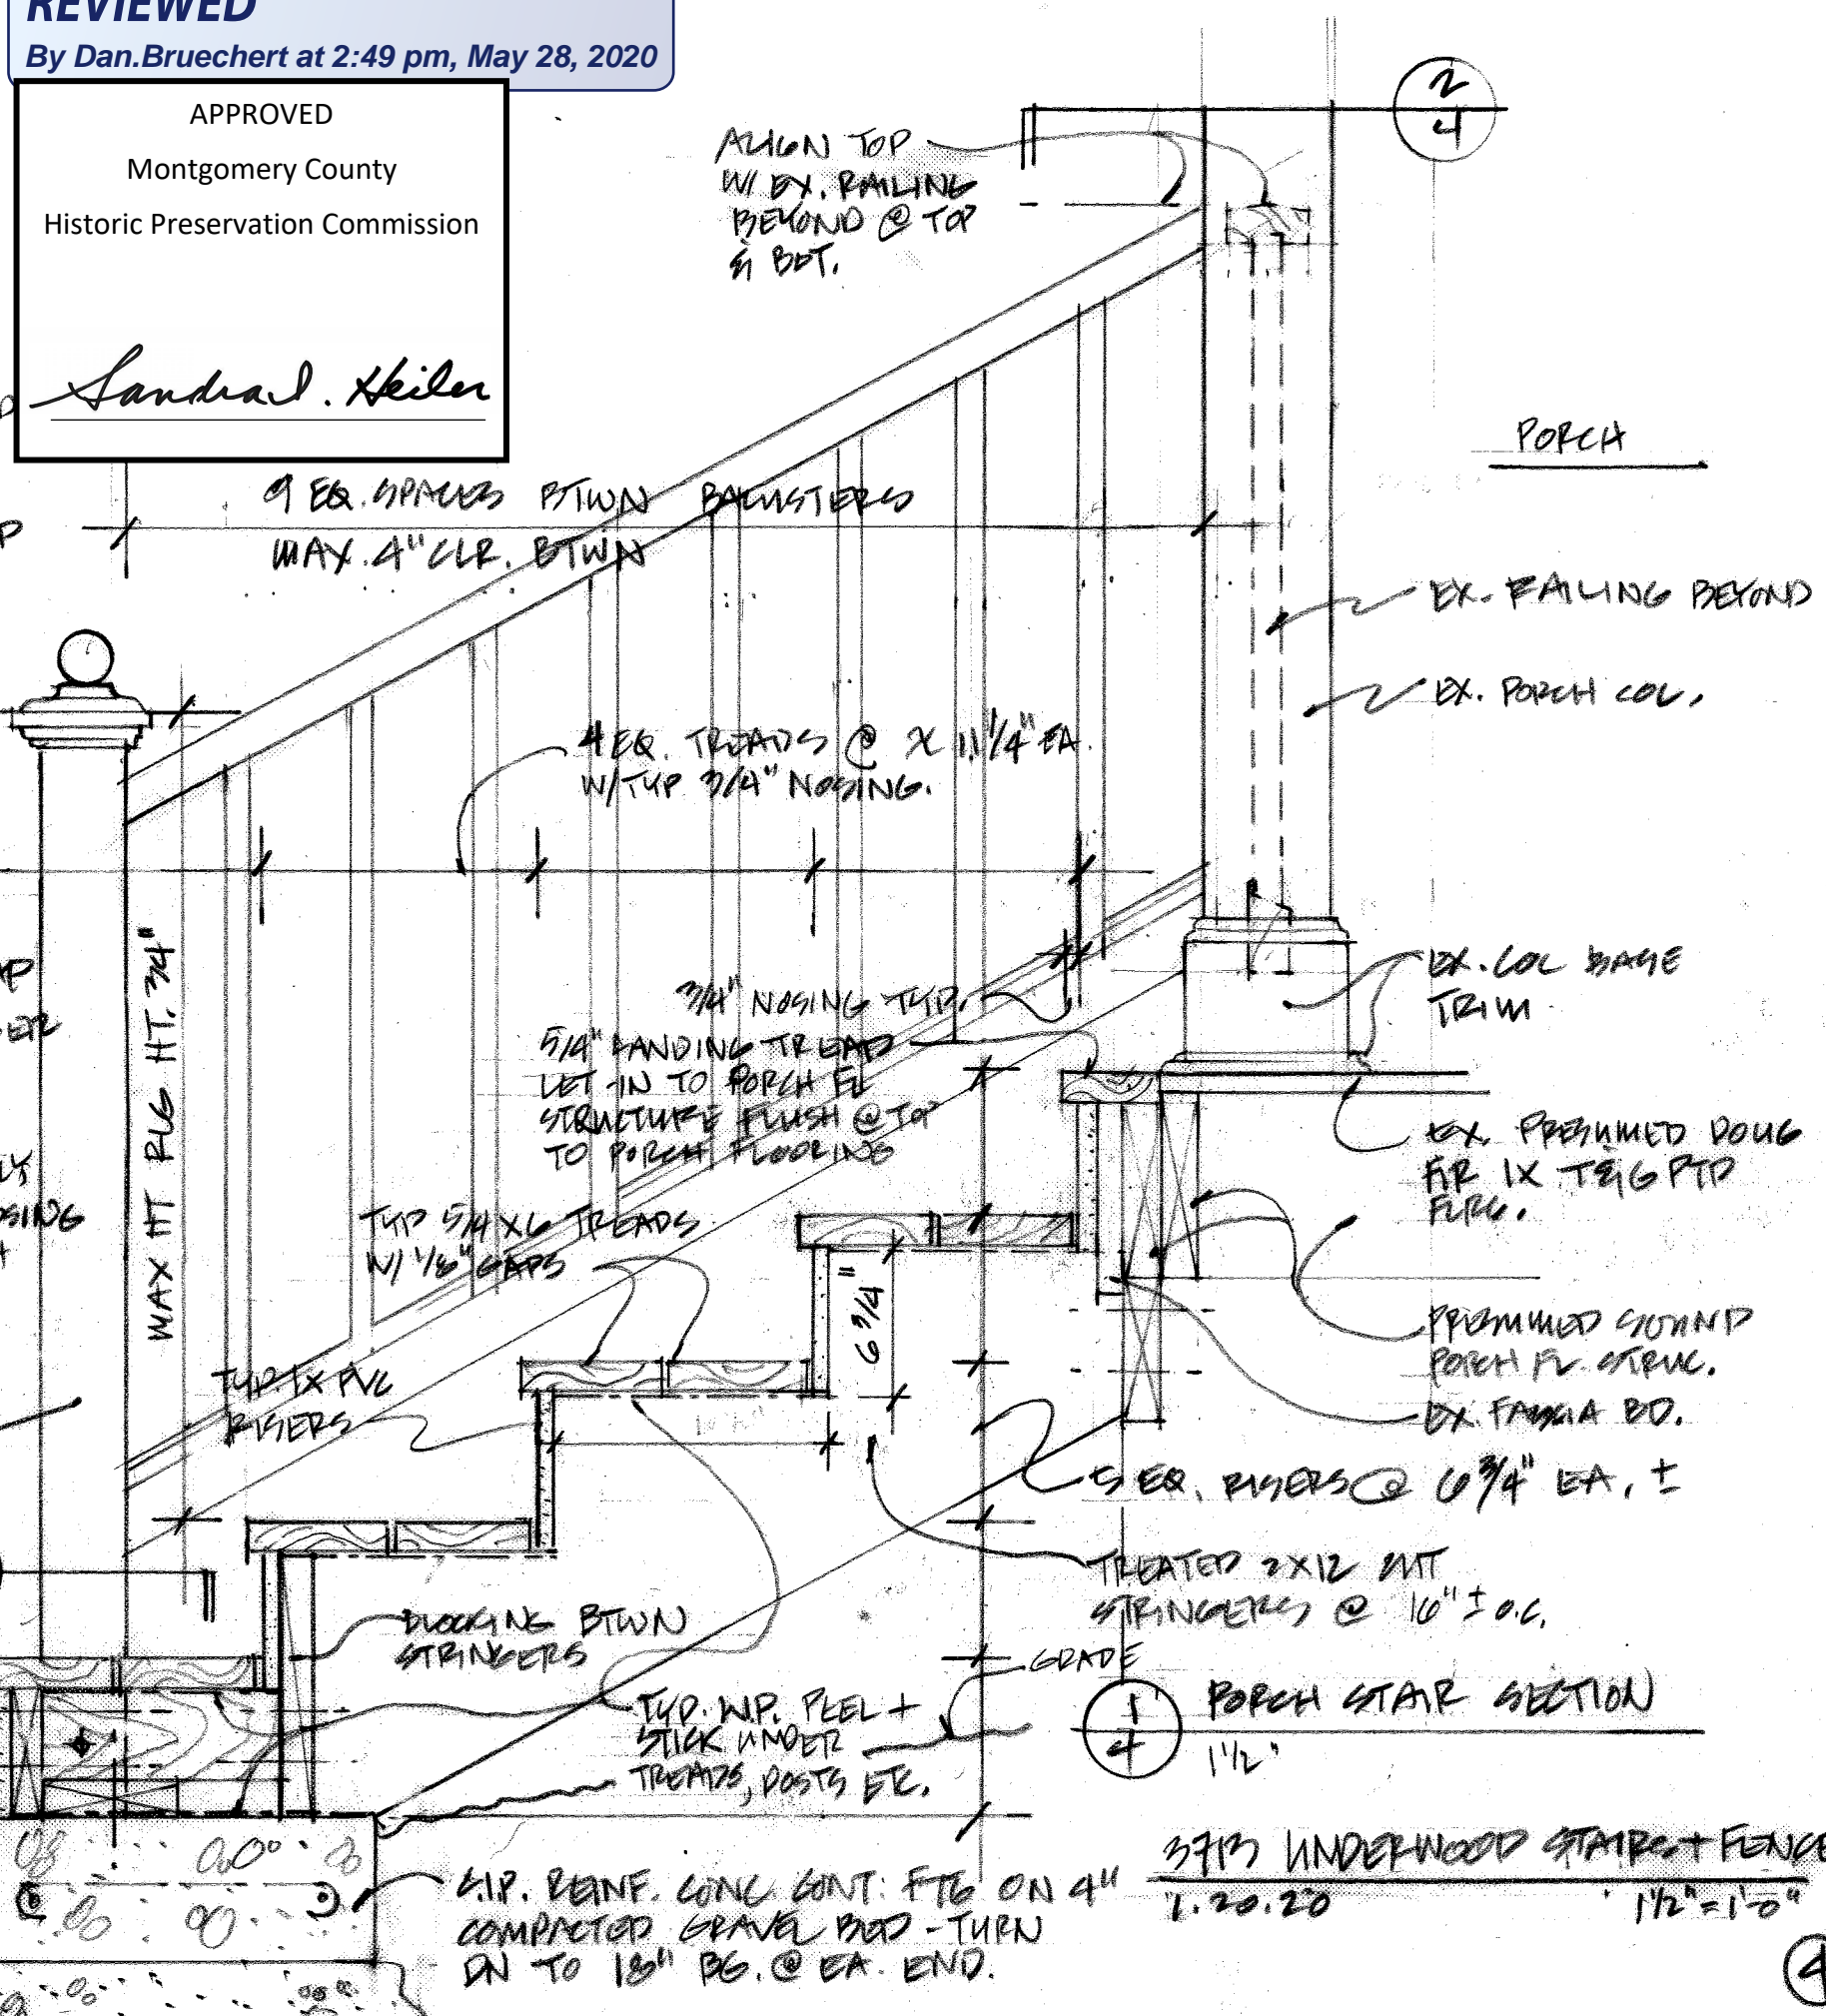 REVIEWED
By Dan.Bruechert at 2:49 pm, May 28, 2020
APPROVED
Montgomery County
Historic Preservation Commission
Sandra I. Heiler
2
4
ALIGN TOP
W/ EX. RAILING
BEYOND @ TOP
& BOT.
PORCH
9 EQ. SPACES BTWN BALUSTERS
MAX. 4" CLR. BTWN
EX. RAILING BEYOND
EX. PORCH COL.
4 EQ. TREADS @ 11 1/4" EA.
W/TYP 3/4" NOSING.
MAX HT RLG HT. 34"
3/4" NOSING TYP.
5/4" LANDING TREAD
LET-IN TO PORCH FL
STRUCTURE FLUSH @ TOP
TO PORCH FLOORING
EX. COL BASE
TRIM
EX. PRESUMED DOUG
FIR 1X T&G PTD
FLRG.
TYP 5/4 X6 TREADS
W/ 1/8" GAPS
6 3/4"
TYP. 1X PVC
RISERS
PRESUMED SOUND
PORCH FL. STRUC.
EX. FASCIA BD.
5 EQ. RISERS @ 6 3/4" EA. ±
TREATED 2X12 CUT
STRINGERS @ 16" ± O.C.
BLOCKING BTWN
STRINGERS
GRADE
TYP. W.P. PEEL +
STICK UNDER
TREADS, POSTS ETC.
1
4
PORCH STAIR SECTION
1 1/2"
C.I.P. REINF. CONC. CONT. FTG ON 4"
COMPACTED GRAVEL BED - TURN
DN TO 18" BG. @ EA. END.
3713 UNDERWOOD STAIRS + FENCE
1.20.20
1 1/2" = 1'-0"
4